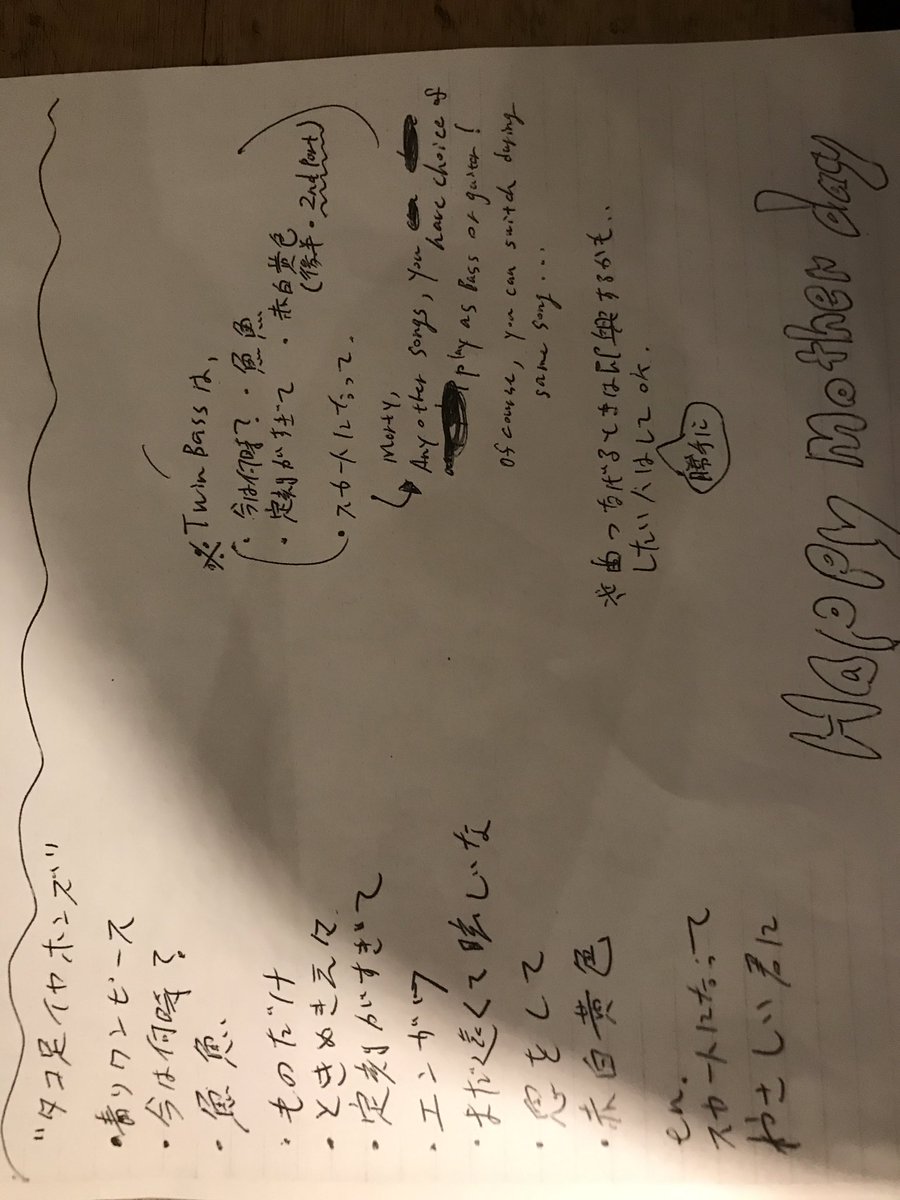 "タコ足イヤホンズ"
・青りワンピース
・今は何時？
・魚魚
・ものだけ
・ときめき元々
・定刻がすぎて
・エンガワ
・まだ遠くて眩しいな
・恋をして
・赤白黄色
en.
スカートになって
やさしい君に
※Twin Bassは、
・今は何時？・魚魚
・定刻がすぎて・赤白黄色
(後半・2nd Part)
・スカートになって.
Morty,
Any other songs, you
have choice of
play as Bass or guitar!
Of course, you can switch during
same song...
※曲つなげるときは即興するかも..
したい人はしてOK.
勝手に
Happy mother day